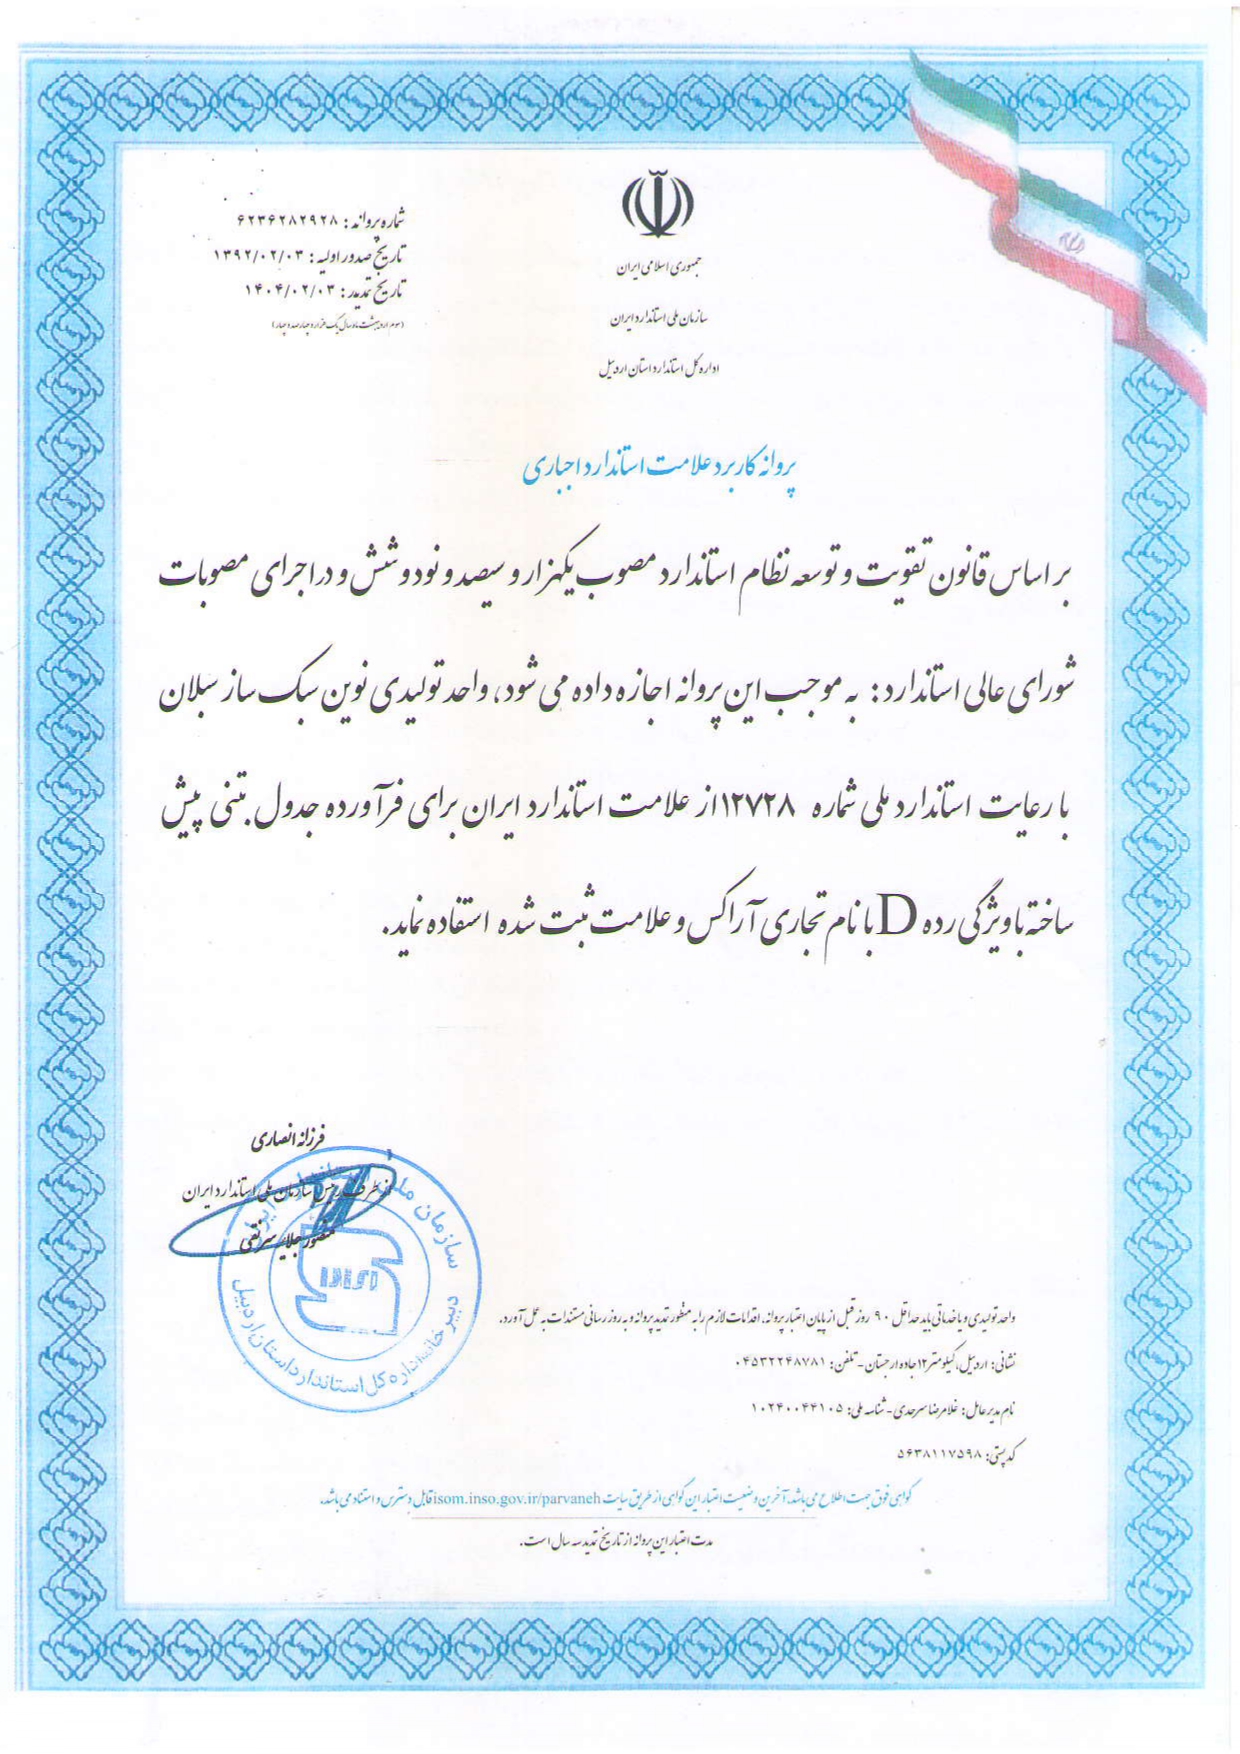 جمهوری اسلامی ایران
سازمان ملی استاندارد ایران
اداره کل استاندارد استان اردبیل
شماره پروانه : ۶۲۳۶۲۸۲۹۲۸
تاریخ صدور اولیه : ۱۳۹۲/۰۲/۰۳
تاریخ تمدید : ۱۴۰۴/۰۲/۰۳
(سوم اردیبهشت ماه سال یک هزار و چهارصد و چهار)
پروانه کاربرد علامت استاندارد اجباری
بر اساس قانون تقویت و توسعه نظام استاندارد مصوب یکهزار و سیصد و نود و شش و در اجرای مصوبات
شورای عالی استاندارد : به موجب این پروانه اجازه داده می شود، واحد تولیدی نوین سبک ساز سبلان
با رعایت استاندارد ملی شماره ۱۲۷۲۸ از علامت استاندارد ایران برای فرآورده جدول بتنی پیش
ساخته با ویژگی رده D با نام تجاری آراکس و علامت ثبت شده استفاده نماید.
فرزانه انصاری
از طرف رییس سازمان ملی استاندارد ایران
سازمان ملی استاندارد ایران
دبیرخانه اداره کل استاندارد استان اردبیل
واحد تولیدی و یا خدماتی باید حداقل ۹۰ روز قبل از پایان اعتبار پروانه، اقدامات لازم را به منظور تمدید پروانه و به روز رسانی مستندات به عمل آورد.
نشانی: اردبیل، کیلومتر ۱۲ جاده ارجستان - تلفن: ۰۴۵۳۲۲۴۸۷۸۱
نام مدیر عامل: غلامرضا سرحدی - شناسه ملی: ۱۰۲۴۰۰۴۴۱۰۵
کد پستی: ۵۶۳۸۱۱۷۵۹۸
گواهی فوق جهت اطلاع می باشد، آخرین وضعیت اعتبار این گواهی از طریق سایت isom.inso.gov.ir/parvaneh قابل دسترس و استناد می باشد.
مدت اعتبار این پروانه از تاریخ تمدید سه سال است.